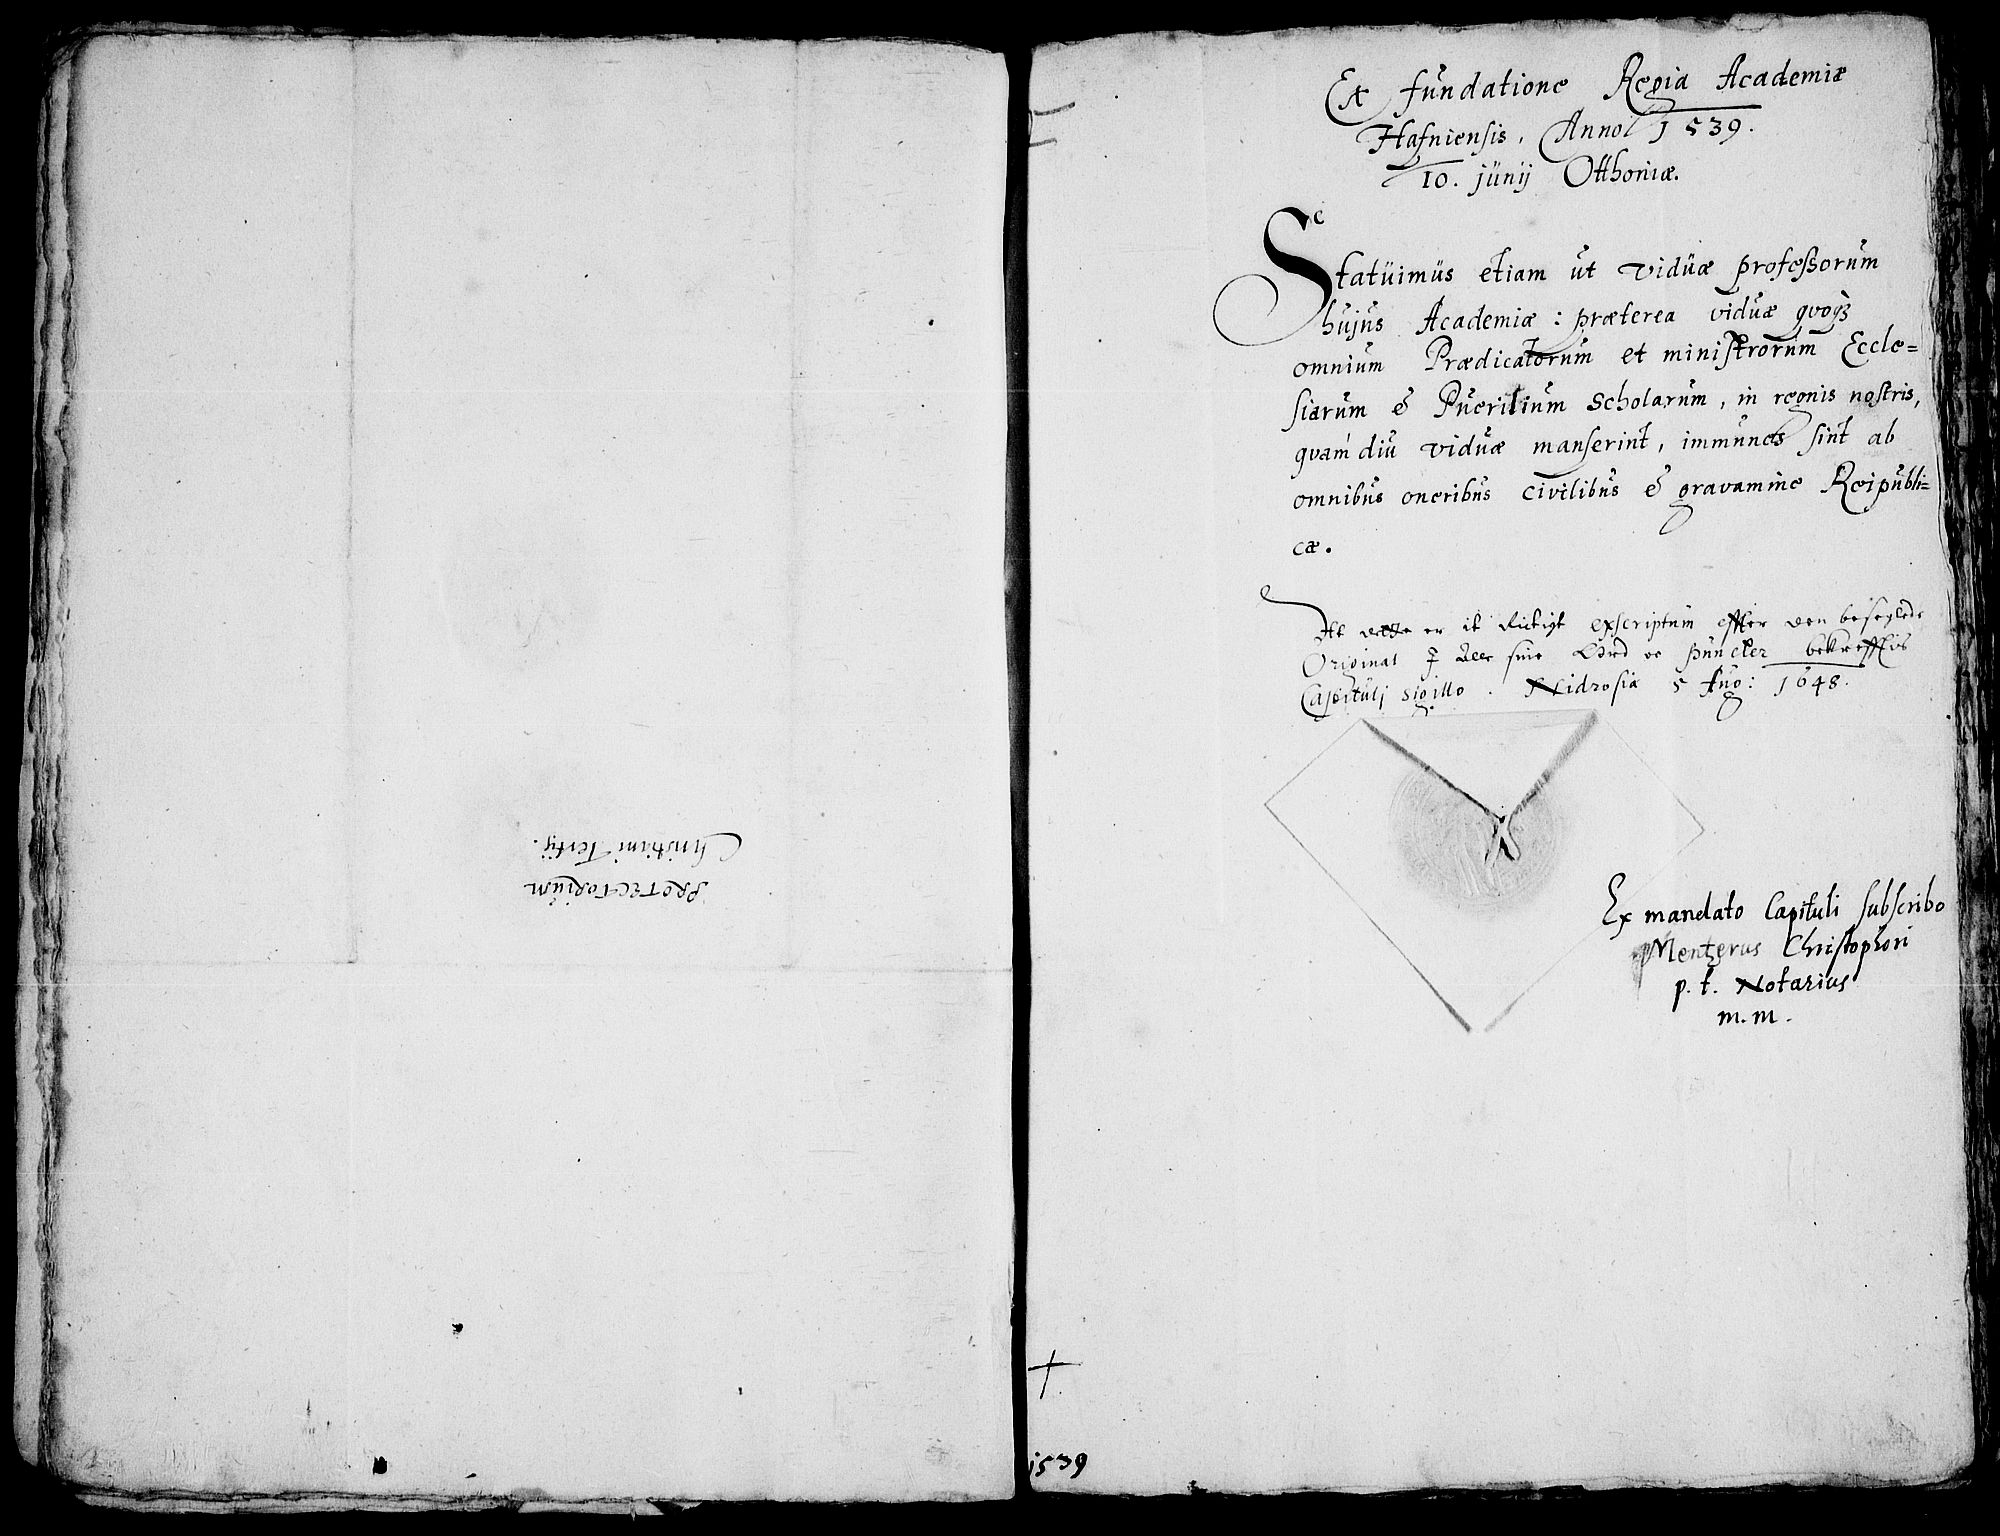 PROTECTORIUM
Christiani Tertij.
Ex fundatione Regia Academiæ
Hafniensis, Anno 1539.
10. junij Otthoniæ.
Statuimus etiam ut viduæ professorum
hujus Academiæ : præterea viduæ qvoqз
omnium Prædicatorum et ministrorum Eccle=
siarum & Puerilium scholarum, in regnis nostris,
qvam diu viduæ manserint, immunes sint ab
omnibus oneribus civilibus & gravamine Reipubli=
cæ.
At dette er it Richtigt exscriptum effter den beseglede
Original J alle sine Ord oc puncter bekrefftis
Capituli sigillo. Nidrosiæ 5 Aug: 1648.
Ex mandato Capituli subscribo
Mentzerus Christophori
p. t. Notarius
m. m.
1539